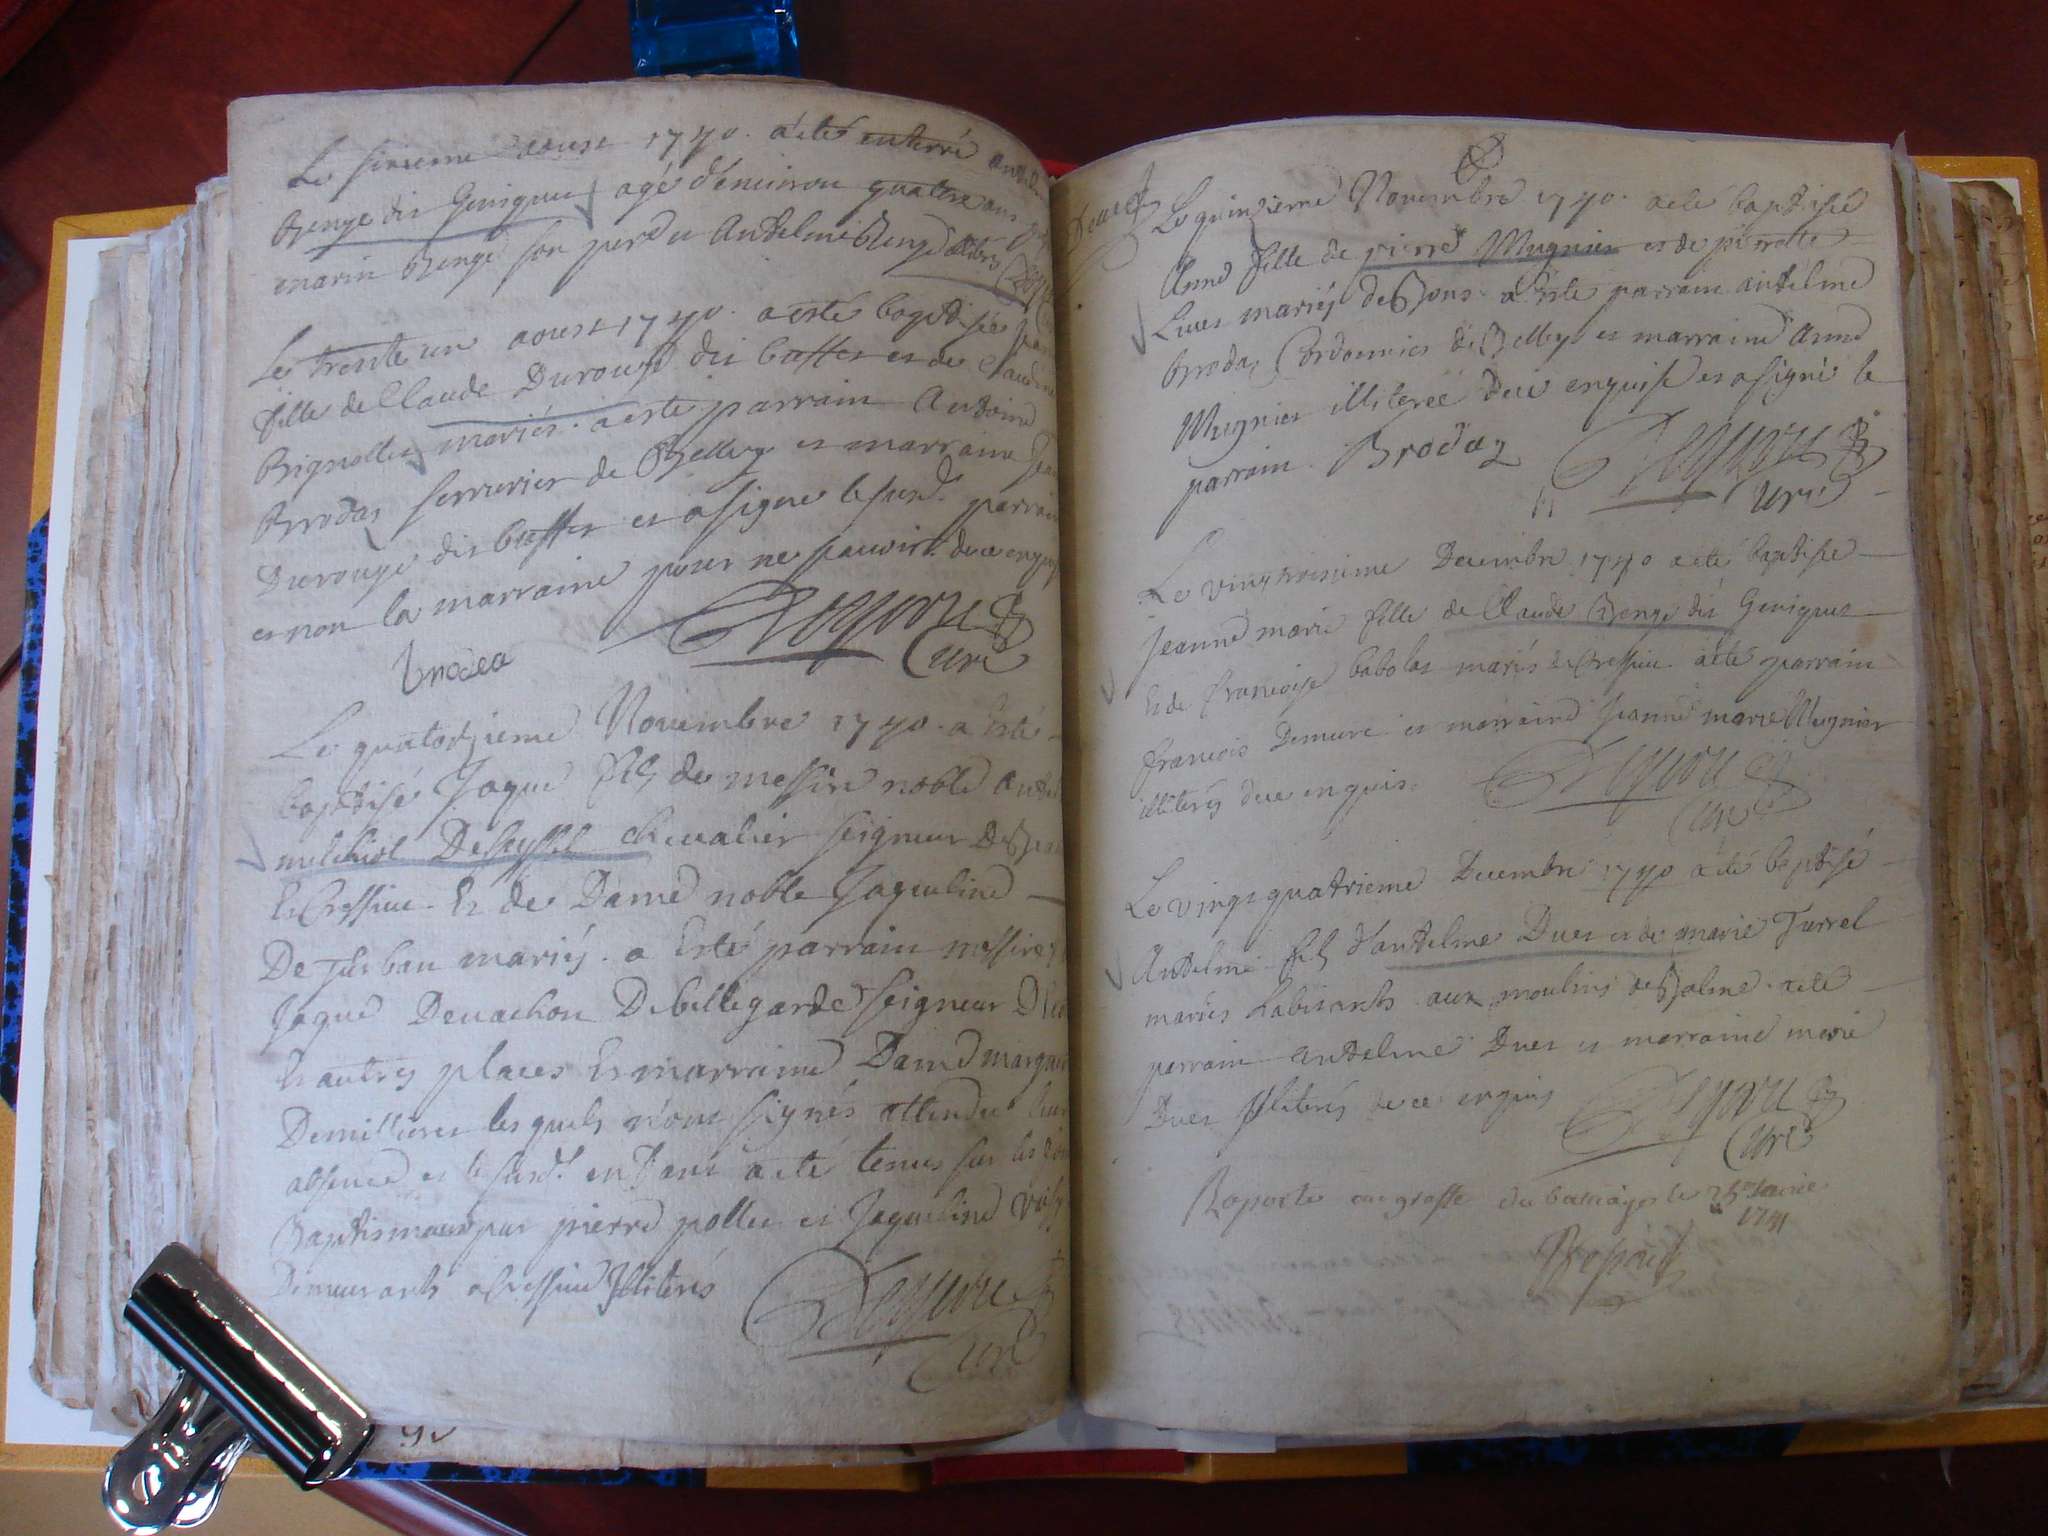 Le sixieme aoust 1740. a été enterré
Benge dit Genigue agé d'environ quatre ans
marin Benge son perdu Andelme Benge
Le trente un aoust 1740. a esté baptisée
fille de Claude Durouge dit buffet et de Claudine
Brignollet mariés. a este parrain Antoine
Brodaz serrurier de Belley et marraine
Durouge dit buffet et a signe le susd. parrain
et non la marraine pour ne scavoir de ce enquis
Brodea
Curé
Le quatorzieme Novembre 1740. a Esté
baptisé Jaque fils de messire noble
melchiol Deseyssel chevalier seigneur
Et Cressieu. Et de Dame noble Jaqueline
De mariés. a Esté parrain messire
Jaque Devachon Debellegarde seigneur
Et autres places Et marraine Dame
Demillieres lesquels n'ont signés attendu leur
absence et le susd. enfant a eté tenus sur les
Baptismaux par pierre pollet et Jaqueline
Demeurants a Cressieu Illiterés
Curé
Le quinzieme Novembre 1740. a eté baptisée
Anne fille de pierre Mugnier et de pierrotte
mariés de Bons. a Esté parrain andelme
Brodaz Cordonnier de Belley et marraine Anne
Mugnier illiterée de ce enquise et a signé le
parrain. Brodaz
Curé
Le vingtroisieme Decembre 1740 a eté baptisée
Jeanne marie fille de Claude Benge dit Genigue
Et de francoise babolat mariés de Cressieu. a eté parrain
francois Demeure et marraine Jeanne marie Mugnier
illiterés de ce enquis.
Curé
Le vingt quatrieme Decembre 1740 a été baptisé
Andelme fils d'andelme Duet et de marie Turrel
mariés habitants aux moulins de Balme. a eté
parrain andelme Duet et marraine marie
Duet Illiterés de ce enquis
Curé
Raporté au greffe du balliage le 25
1741